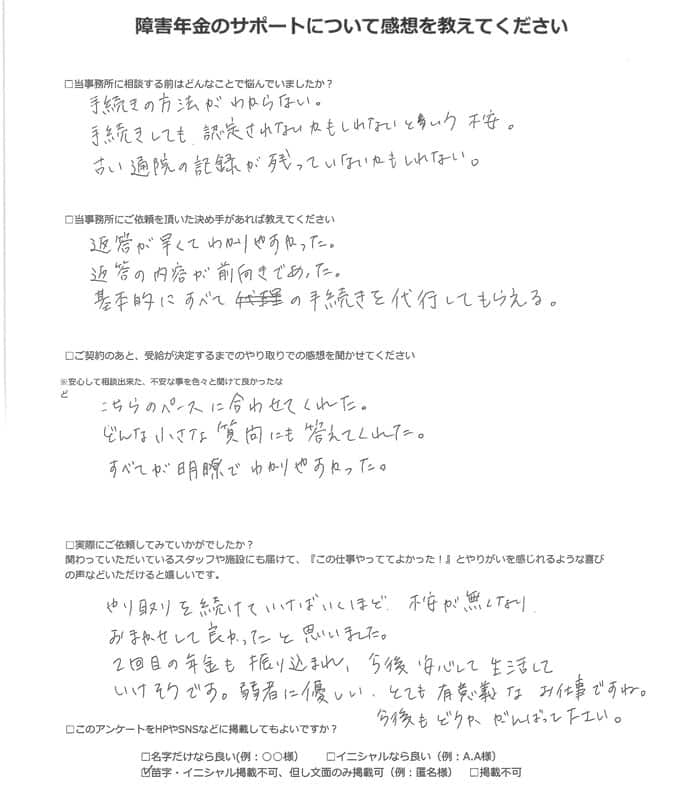 障害年金のサポートについて感想を教えてください
□当事務所に相談する前はどんなことで悩んでいましたか？
手続きの方法がわからない。
手続きしても、認定されないかもしれないという不安。
古い通院の記録が残っていないかもしれない。
□当事務所にご依頼を頂いた決め手があれば教えてください
返答が早くてわかりやすかった。
返答の内容が前向きであった。
基本的にすべての手続きを代行してもらえる。
□ご契約のあと、受給が決定するまでのやり取りでの感想を聞かせてください
※安心して相談出来た、不安な事を色々と聞けて良かったな
ど
こちらのペースに合わせてくれた。
どんな小さな質問にも答えてくれた。
すべてが明瞭でわかりやすかった。
□実際にご依頼してみていかがでしたか？
関わっていただいているスタッフや施設にも届けて、『この仕事やっててよかった！』とやりがいを感じれるような喜び
の声などいただけると嬉しいです。
やり取りを続けていけばいくほど、不安が無くなり、
おまかせして良かったと思いました。
2回目の年金も振り込まれ、今後安心して生活して
いけそうです。弱者に優しい、とても有意義なお仕事ですね。
今後もどうかがんばって下さい。
□このアンケートをHPやSNSなどに掲載してもよいですか？
□名字だけなら良い(例：〇〇様) □イニシャルなら良い（例：A.A様）
☑苗字・イニシャル掲載不可、但し文面のみ掲載可（例：匿名様） □掲載不可